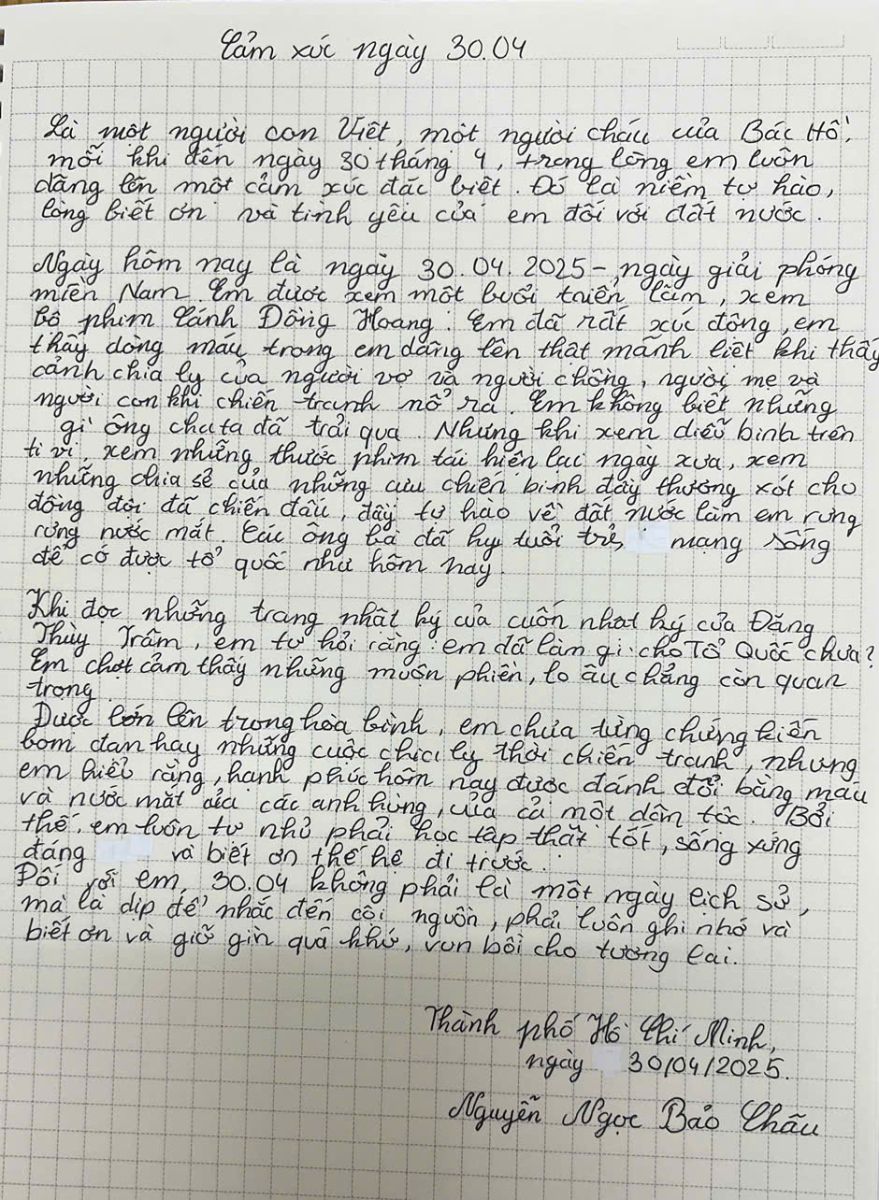 Cảm xúc ngày 30.04
Là một người con Việt, một người cháu của Bác Hồ,
mỗi khi đến ngày 30 tháng 4, trong lòng em luôn
dâng lên một cảm xúc đặc biệt. Đó là niềm tự hào,
lòng biết ơn và tình yêu của em đối với đất nước.
Ngày hôm nay là ngày 30.04.2025 - ngày giải phóng
miền Nam. Em được xem một buổi triển lãm, xem
bộ phim Cánh Đồng Hoang. Em đã rất xúc động, em
thấy dòng máu trong em dâng lên thật mãnh liệt khi thấy
cảnh chia ly của người vợ và người chồng, người mẹ và
người con khi chiến tranh nổ ra. Em không biết những
gì ông cha ta đã trải qua. Nhưng khi xem diễu binh trên
ti vi, xem những thước phim tái hiện lại ngày xưa, xem
những chia sẻ của những cựu chiến binh đầy thương xót cho
đồng đội đã chiến đấu, đầy tự hào về đất nước làm em rưng
rưng nước mắt. Các ông bà đã hy tuổi trẻ, mạng sống
để có được tổ quốc như hôm nay.
Khi đọc những trang nhật ký của cuốn nhật ký của Đặng
Thùy Trâm, em tự hỏi rằng: em đã làm gì cho Tổ Quốc chưa?
Em chợt cảm thấy những muộn phiền, lo âu chẳng còn quan
trọng.
Được lớn lên trong hòa bình, em chưa từng chứng kiến
bom đạn hay những cuộc chia ly thời chiến tranh, nhưng
em hiểu rằng, hạnh phúc hôm nay được đánh đổi bằng máu
và nước mắt của các anh hùng, của cả một dân tộc. Bởi
thế, em luôn tự nhủ phải học tập thật tốt, sống xứng
đáng và biết ơn thế hệ đi trước.
Đối với em, 30.04 không phải là một ngày lịch sử,
mà là dịp để nhắc đến cội nguồn, phải luôn ghi nhớ và
biết ơn và giữ gìn quá khứ, vun bồi cho tương lai.
Thành phố Hồ Chí Minh,
ngày 30/04/2025.
Nguyễn Ngọc Bảo Châu